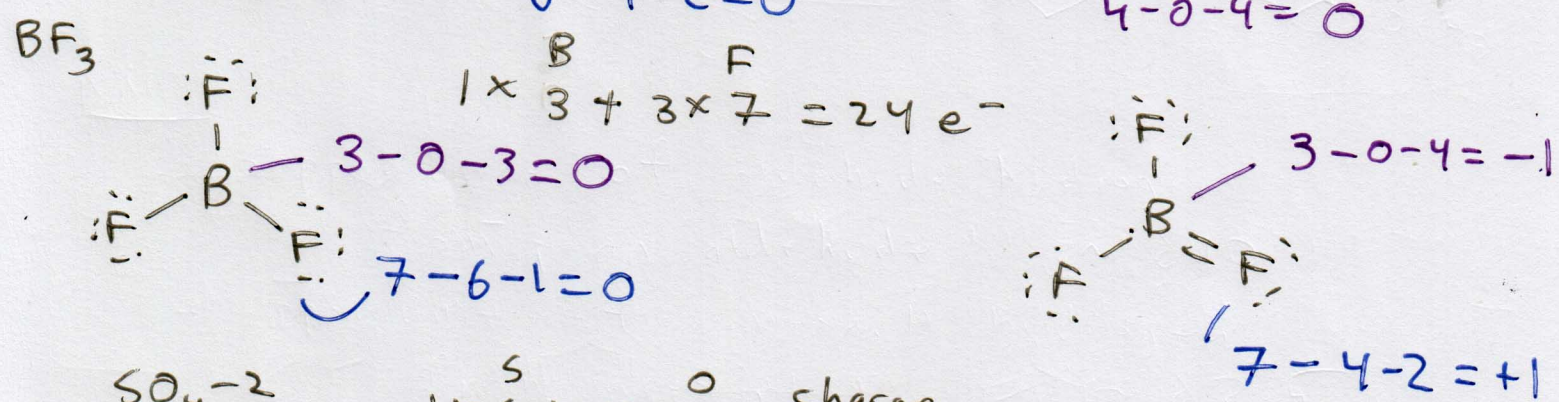 4-0-4= 0
BF3
B F
1× 3 + 3× 7 = 24 e⁻
:F:
B
3-0-3=0
:F
F:
7-6-1=0
:F:
B
3-0-4= -1
:F
F:
7-4-2=+1
SO₄-2
S O charge